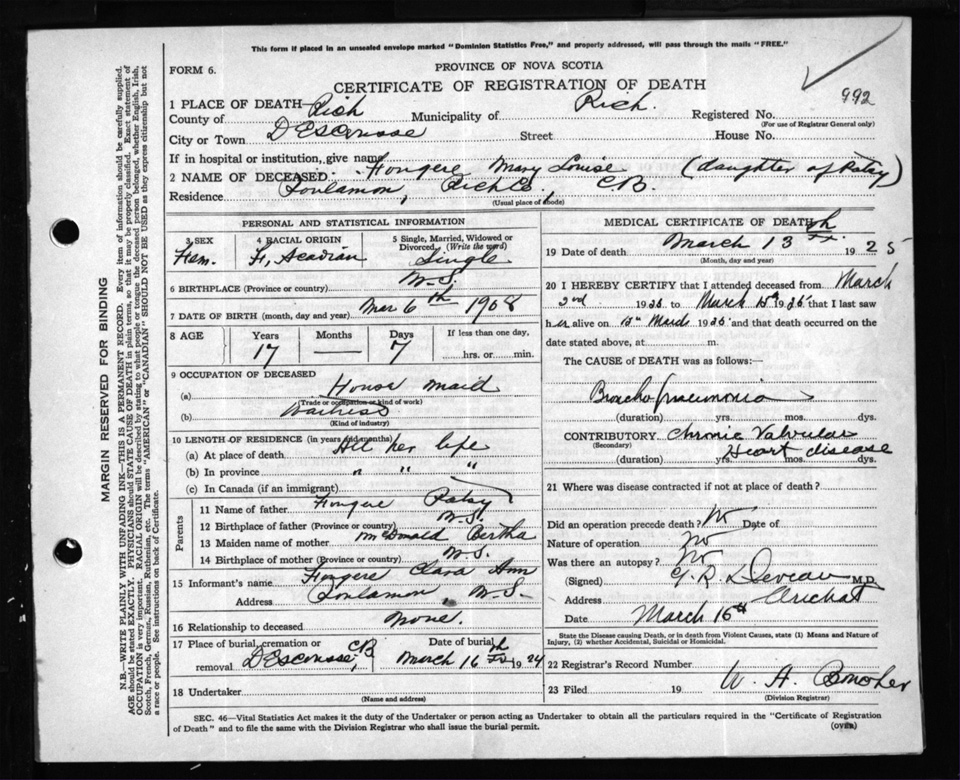 This form if placed in an unsealed envelope marked "Dominion Statistics Free," and properly addressed, will pass through the mails "FREE."
FORM 6.
PROVINCE OF NOVA SCOTIA
CERTIFICATE OF REGISTRATION OF DEATH
992
1 PLACE OF DEATH—
County of Rich Municipality of Rich. Registered No.
(For use of Registrar General only)
City or Town DEscousse Street House No.
If in hospital or institution, give name
2 NAME OF DECEASED. Fougere Mary Louise (daughter of Patsy)
Residence Poulamon, Rich Co., CB.
(Usual place of abode)
PERSONAL AND STATISTICAL INFORMATION
3 SEX Fem.
4 RACIAL ORIGIN Fr. Acadian
5 Single, Married, Widowed or Divorced. (Write the word) Single
6 BIRTHPLACE (Province or country) N.S.
7 DATE OF BIRTH (month, day and year) Mar 6th 1908
8 AGE Years 17 Months — Days 7 If less than one day, hrs. or min.
9 OCCUPATION OF DECEASED
(a) House maid
(Trade or occupation or kind of work)
(b) Waitress
(Kind of industry)
10 LENGTH OF RESIDENCE (in years and months)
(a) At place of death All her life
(b) In province " " "
(c) In Canada (if an immigrant)
Parents
11 Name of father Fougere Patsy
12 Birthplace of father (Province or country) N.S.
13 Maiden name of mother McDonald Bertha
14 Birthplace of mother (Province or country) N.S.
15 Informant's name Fougere Clara Ann
Address Poulamon, N.S.
16 Relationship to deceased None.
17 Place of burial, cremation or removal DEscousse, CB
Date of burial March 16th 1924
18 Undertaker
(Name and address)
MEDICAL CERTIFICATE OF DEATH
19 Date of death March 13th 1925
(Month, day and year)
20 I HEREBY CERTIFY that I attended deceased from March
2nd 1925 to March 1925 that I last saw
her alive on March 1925 and that death occurred on the
date stated above, at m.
The CAUSE of DEATH was as follows:
Broncho pneumonia
(duration) yrs. mos. dys.
CONTRIBUTORY Chronic Valvular
(Secondary) Heart disease
(duration) yrs. mos. dys.
21 Where was disease contracted if not at place of death?
Did an operation precede death? No Date of
Nature of operation No
Was there an autopsy? No
(Signed) G. R. Deveau M.D.
Address Arichat
Date March 16th
State the Disease causing Death, or in death from Violent Causes, state (1) Means and Nature of Injury, (2) whether Accidental, Suicidal or Homicidal.
22 Registrar's Record Number
23 Filed 19 W. A.
(Division Registrar)
SEC. 46—Vital Statistics Act makes it the duty of the Undertaker or person acting as Undertaker to obtain all the particulars required in the "Certificate of Registration
of Death" and to file the same with the Division Registrar who shall issue the burial permit.
(over)
MARGIN RESERVED FOR BINDING
N.B.—WRITE PLAINLY WITH UNFADING INK—THIS IS A PERMANENT RECORD. Every item of information should be carefully supplied.
AGE should be stated EXACTLY. PHYSICIANS should STATE CAUSE OF DEATH in plain terms, so that it may be properly classified. Exact statement of
OCCUPATION is very important. RACIAL ORIGIN will be described by stating to what people or tongue the deceased person belonged, whether English, Irish,
Scotch, French, German, Russian, Ruthenian, etc. The terms "AMERICAN" or "CANADIAN" SHOULD NOT BE USED as they express citizenship but not
a race or people. See instructions on back of Certificate.